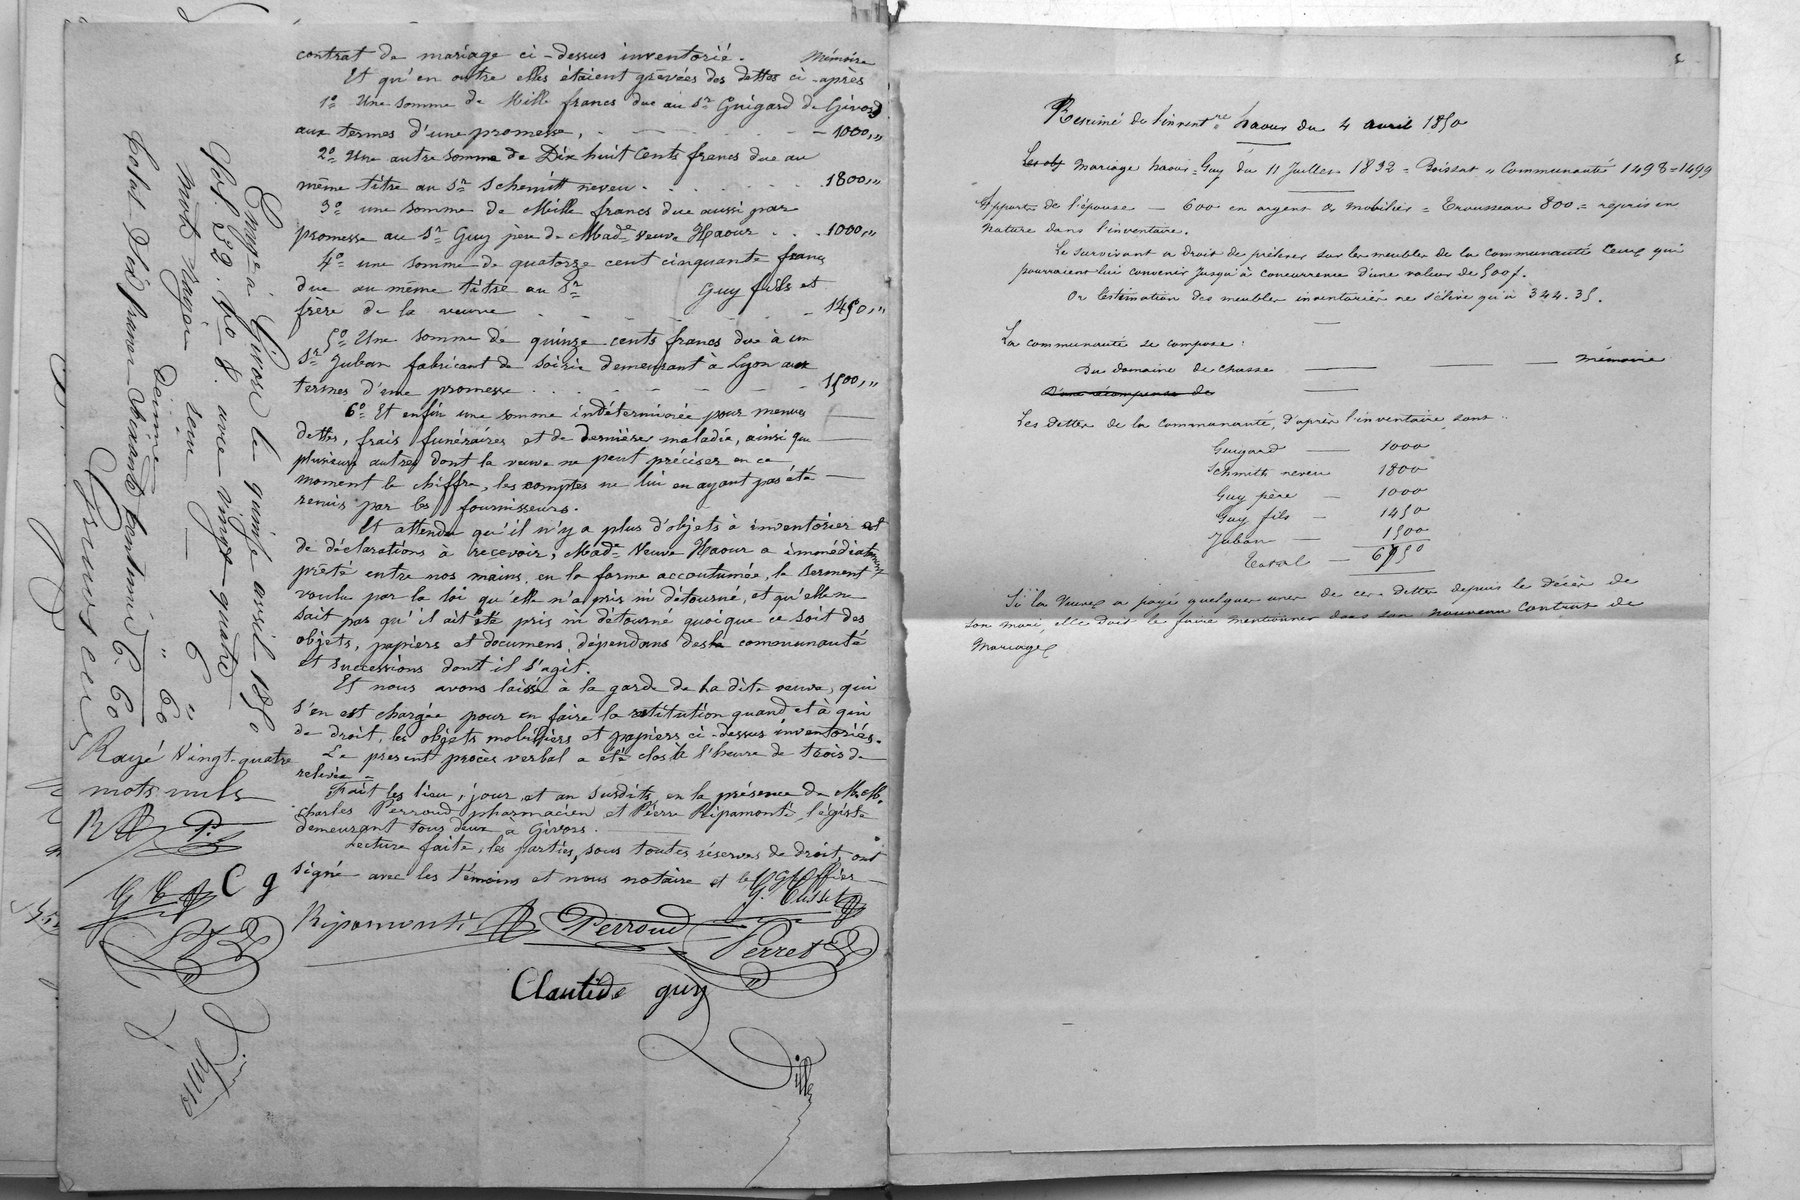 contrat de mariage ci-dessus inventorié. Mémoire
Et qu'en outre elles étaient grévées des dettes ci-après
1º Une somme de Mille francs due au Sr Guigard de Givors
aux termes d'une promesse, - 1000,"
2º Une autre somme de Dix huit Cents francs due au
même titre au Sr Schmitt neveu . 1800,"
3º une somme de Mille francs due aussi par
promesse au Sr Guy père de Made Veuve Haour . . . 1000,"
4º une somme de quatorze cent cinquante francs
due au même titre au Sr Guy fils et
frère de la veuve - 1450,"
5º Une somme de quinze cents francs due à un
Sr Juban fabricant de soirie demeurant à Lyon aux
termes d'une promesse . . . 1500,"
6º Et enfin une somme indéterminée pour menues
dettes, frais funéraires et de dernière maladie, ainsi que
plusieurs autres dont la veuve ne peut préciser en ce
moment le chiffre, les comptes ne lui en ayant pas été
remis par les fournisseurs.
Et attendu qu'il n'y a plus d'objets à inventorier et
de déclarations à recevoir, Made Veuve Haour a immédiatement
prêté entre nos mains, en la forme accoutumée, le serment
voulu par la loi qu'elle n'a pris ni détourné, et qu'elle ne
sait pas qu'il ait été pris ni détourné quoique ce soit des
objets, papiers et documens, dépendans des la communauté
et successions dont il s'agit.
Et nous avons laissé à la garde de la dite veuve, qui
s'en est chargée pour en faire la restitution quand et à qui
de droit, les objets mobiliers et papiers ci-dessus inventoriés.
Le présent procès verbal a été clos à l'heure de trois de
relevée =
Fait les lieu, jour et an susdits, en la présence de M.M.
Charles Perroud pharmacien et Pierre Ripamonti, légiste
demeurant tous deux à Givors.
Lecture faite, les parties, sous toutes réserves de droit, ont
signé avec les témoins et nous notaire et le Greffier
Ripamonti Perroud
Perret
Clautide guy
Enregé à Givors le quinze avril 1850
fol. 32. Ro 8. avec vingt-quatre
mots rayés rein 6 "
Décime " 60
total six francs soixante centimes 6. 60
Rayé Vingt-quatre
mots nuls
C g
Resumé de l'inventre haour du 4 avril 1850
Les obj Mariage haour = Guy du 11 Juillet 1832 = Boissat " Communauté 1498 = 1499
Apports de l'épouse - 600 en argent & mobilier = Trousseau 800 = repris en
nature dans l'inventaire.
Le survivant a droit de prélever sur les meubles de la communauté ceux qui
pourraient lui convenir jusqu'à concurrence d'une valeur de 500 f.
Or l'estimation des meubles inventoriés ne s'élève qu'à 344.35.
La communauté se compose :
Du domaine de chasse — — mémoire
D'une récompense de —
Les dettes de la communauté, d'après l'inventaire sont :
Guigard — 1000
Schmith neveu 1800
Guy père — 1000
Guy fils — 1450
Juban — 1500
Total — 6750
Si la Veuve a payé quelques unes de ces dettes depuis le décès de
son mari, elle doit le faire mentionner dans son nouveau contrat de
Mariage